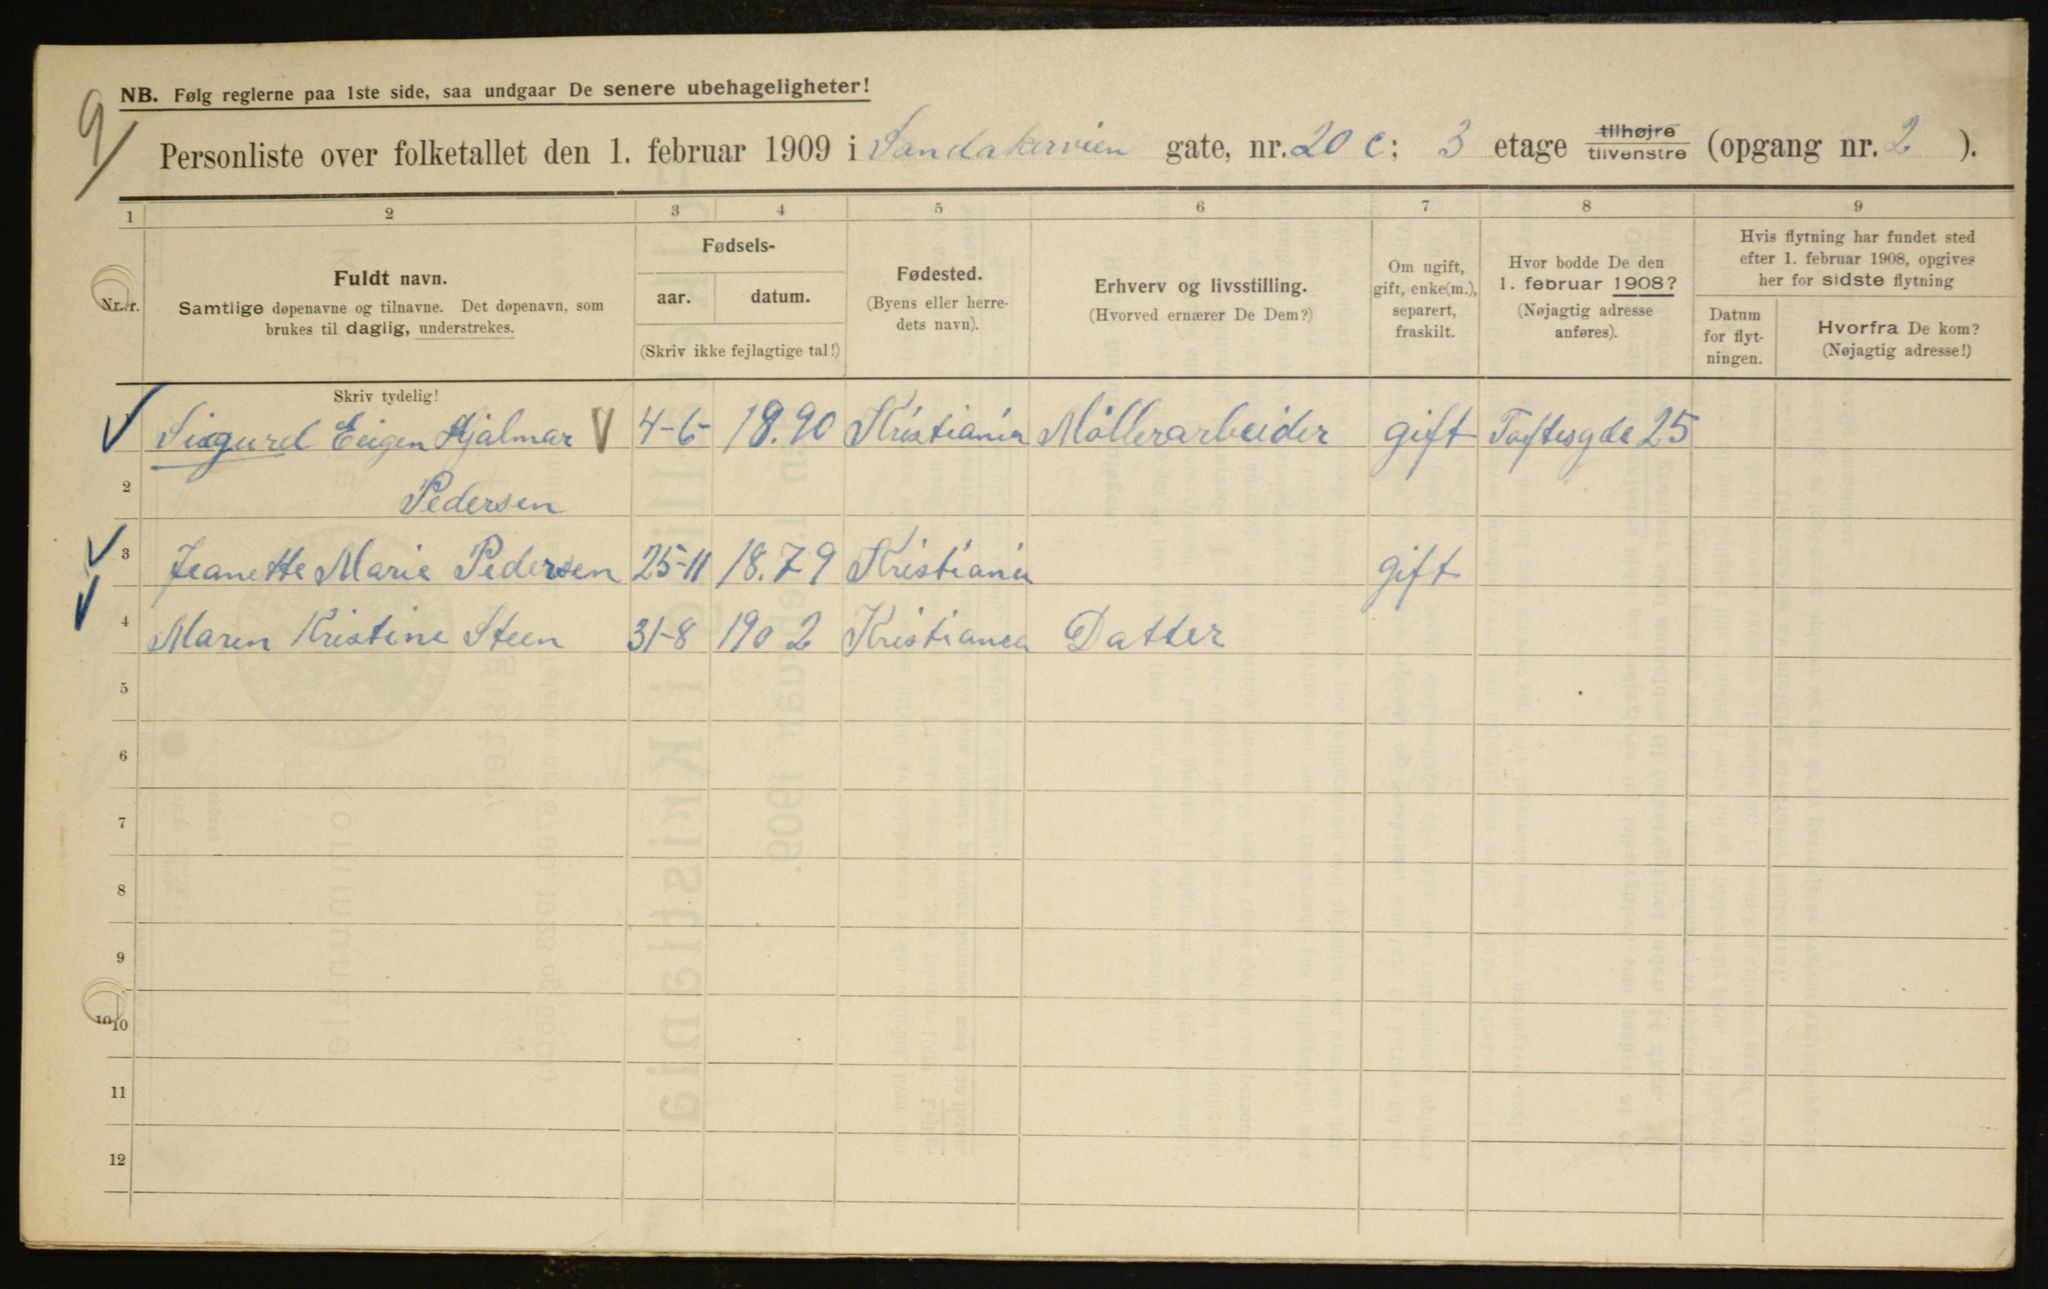 9/
NB. Følg reglerne paa 1ste side, saa undgaar De senere ubehageligheter!
Personliste over folketallet den 1. februar 1909 i Sandakervien gate, nr. 20 c; 3 etage tilhøjre tilvenstre (opgang nr. 2 ).
1 2 3 4 5 6 7 8 9
Nr.
Fuldt navn.
Samtlige døpenavne og tilnavne. Det døpenavn, som
brukes til daglig, understrekes.
Fødsels-
aar. datum.
(Skriv ikke fejlagtige tal!)
Fødested.
(Byens eller herre-
dets navn).
Erhverv og livsstilling.
(Hvorved ernærer De Dem?)
Om ugift,
gift, enke(m.),
separert,
fraskilt.
Hvor bodde De den
1. februar 1908?
(Nøjagtig adresse
anføres).
Hvis flytning har fundet sted
efter 1. februar 1908, opgives
her for sidste flytning
Datum
for flyt-
ningen.
Hvorfra De kom?
(Nøjagtig adresse!)
Skriv tydelig!
Sigurd Eeigen Hjalmar 4-6- 18.90 Kristiania Møllerarbeider gift Toftesgde 25
2 Pedersen
3 Jeanette Marie Pedersen 25-11 18.79 Kristiania gift
4 Maren Kristine Steen 31-8 1902 Kristiania Datter
5
6
7
8
9
10 10
11
12